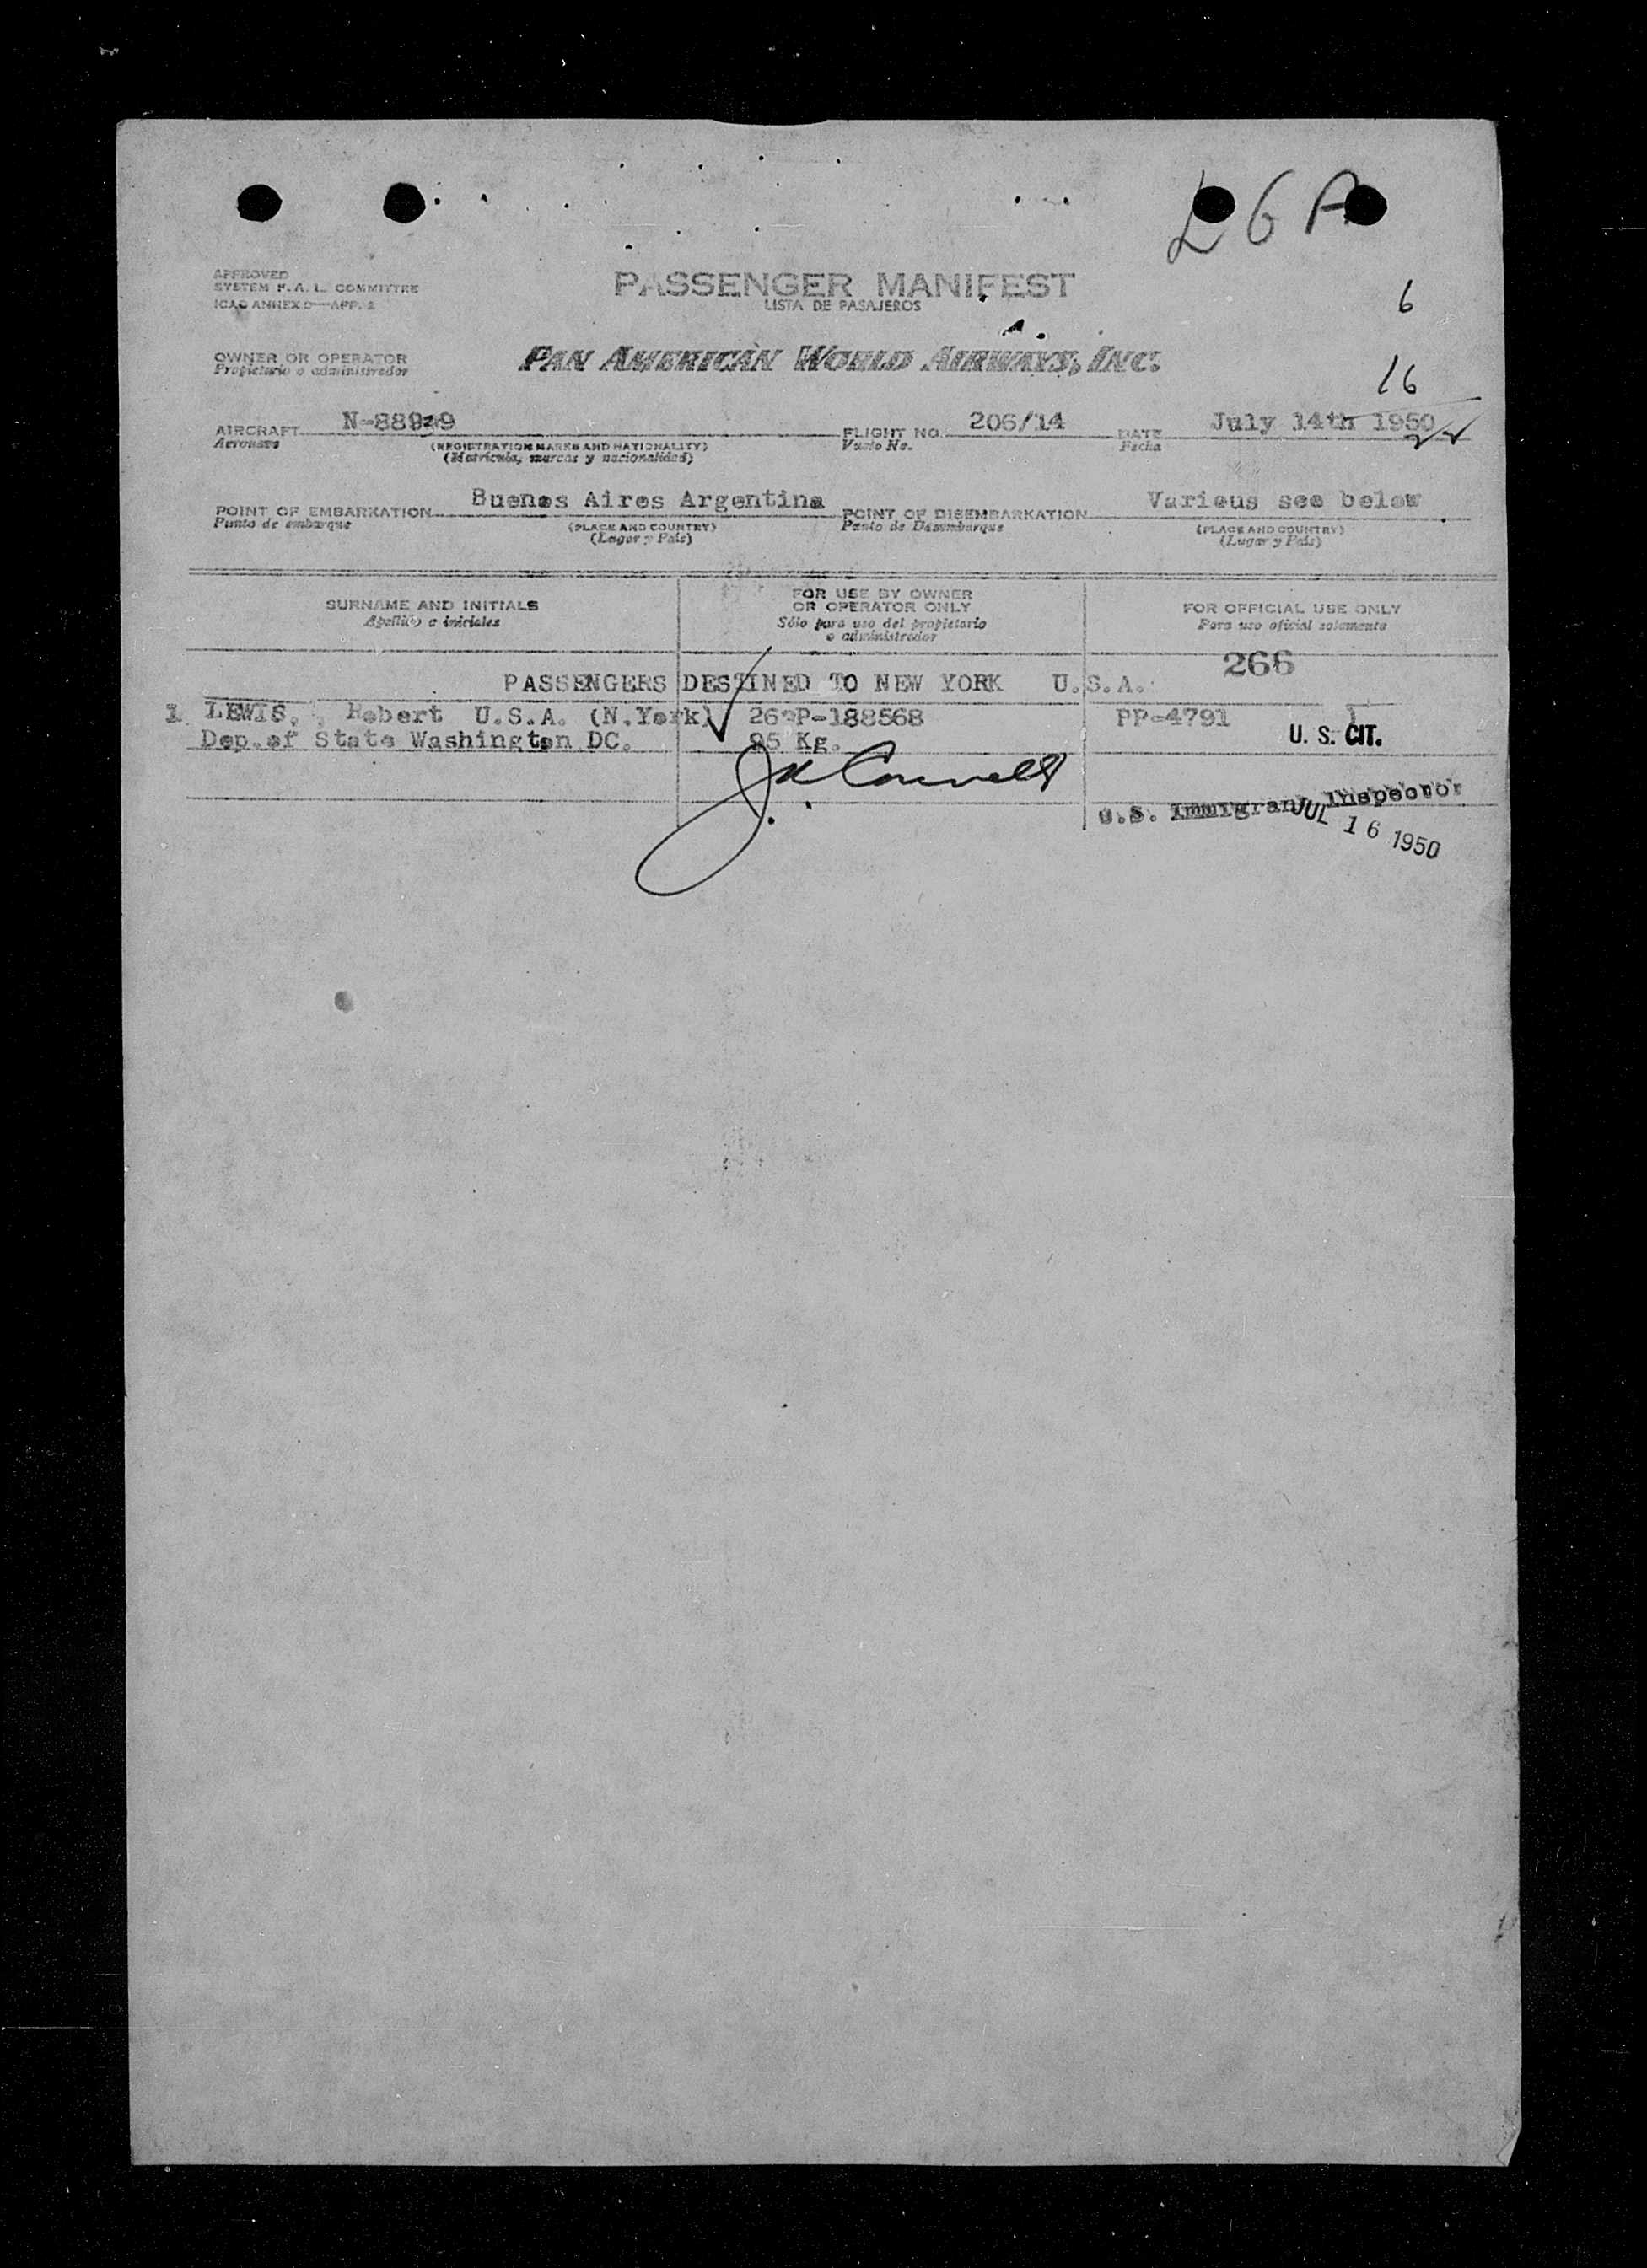 L 6 A
APPROVED
SYSTEM F. A. L. COMMITTEE
ICAO ANNEX 9—APP. 2
PASSENGER MANIFEST
LISTA DE PASAJEROS
6
OWNER OR OPERATOR
Propietario o administrador
PAN AMERICAN WORLD AIRWAYS, INC.
16
AIRCRAFT N-88949 FLIGHT NO. 206/14 DATE July 14th 1950
Aeronave (REGISTRATION MARKS AND NATIONALITY) Vuelo No. Fecha
(Matrícula, marcas y nacionalidad)
22
POINT OF EMBARKATION Buenos Aires Argentina POINT OF DISEMBARKATION Various see below
Punto de embarque (PLACE AND COUNTRY) Punto de Desembarque (PLACE AND COUNTRY)
(Lugar y País) (Lugar y País)
SURNAME AND INITIALS
Apellido e iniciales
FOR USE BY OWNER
OR OPERATOR ONLY
Sólo para uso del propietario
o administrador
FOR OFFICIAL USE ONLY
Para uso oficial solamente
266
PASSENGERS DESTINED TO NEW YORK U.S.A.
1 LEWIS, Robert U.S.A. (N.York) 26-P-188568 PP-4791 1
Dep.of State Washington DC. 95 Kg. U. S. CIT.
U.S. Immigrant Inspector
JUL 16 1950